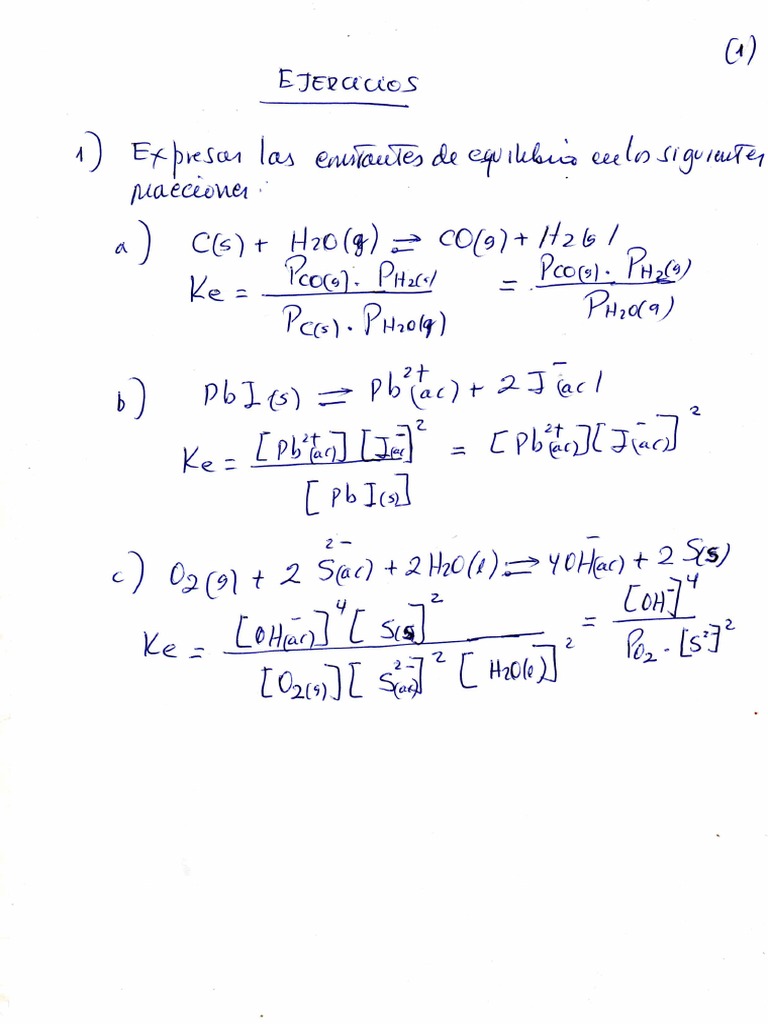 (1)
EJERCICIOS
1) Expresar las constantes de equilibrio en los siguientes
reacciones:
a) C(s) + H2O(g) ⇌ CO(g) + H2(g)
Ke = PCO(g) · PH2(g) / PC(s) · PH2O(g) = PCO(g) · PH2(g) / PH2O(g)
b) PbI(s) ⇌ Pb²⁺(ac) + 2 I⁻(ac)
Ke = [Pb²⁺(ac)] [I⁻(ac)]² / [PbI(s)] = [Pb²⁺(ac)] [I⁻(ac)]²
c) O2(g) + 2 S²⁻(ac) + 2 H2O(l) ⇌ 4 OH⁻(ac) + 2 S(s)
Ke = [OH⁻(ac)]⁴ [S(s)]² / [O2(g)] [S²⁻(ac)]² [H2O(l)]² = [OH⁻]⁴ / PO2 · [S²⁻]²